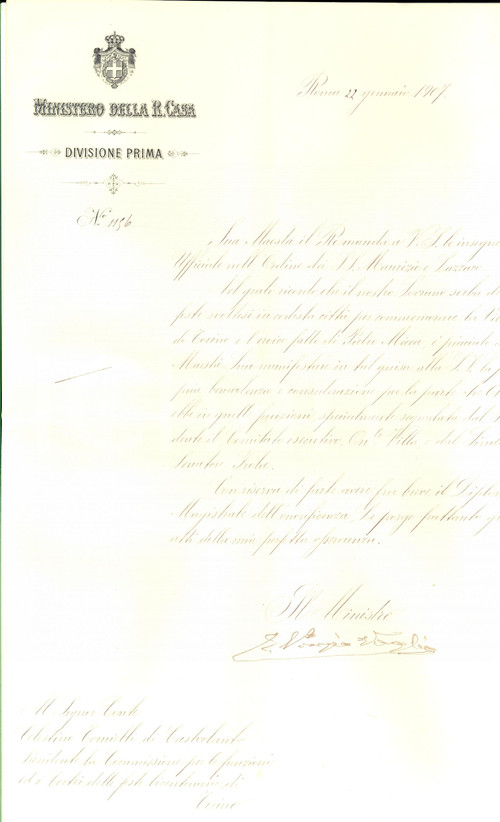 MINISTERO DELLA R. CASA
DIVISIONE PRIMA
No. 1156
Roma 22 gennaio 1907.
Sua Maestà il Re manda a V. S. le insegne
Uffiziale nell'Ordine dei S.S. Maurizio e Lazzaro
quale ricordo che il nostro Sovrano serba d
feste svoltesi in codesta città per commemorare la
di Torino e l'eroico fatto di Pietro Micca, è piaciuto a
Maestà Sua manifestare in tal guisa alla S. V. la
pua benevolenza e considerazione per la parte che
ebbe in quelle funzioni, specialmente segnalata dal
dente il Comitato esecutivo, On.le Villa e dal Sind
Senatore Frola.
Con riserva di farle avere fra breve il Diplo
Magistrale dell'onorificenza, Le porgo frattanto
atti della mia perfetta osservanza.
Il Ministro
Al Signor Conte
di Castelvento
la Commissione per le funzioni
ed i Cortei delle feste bicentenarie di
Torino